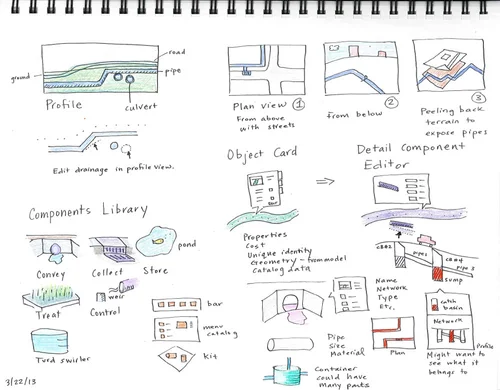 road
ground
pipe
culvert
Profile
Plan view ①
From above
with streets
②
From below
③
Peeling back
terrain to
expose pipes
Edit drainage in profile view.
Object Card
Detail Component
Editor
Components Library
Properties
Cost
Unique identity
Geometry - from model
Catalog data
pond
Convey
Collect
Store
weir
Treat
Control
bar
menu
catalog
kit
pipe 3
sump
Name
Network
Type
Etc.
catch
basin
Network
Profile
Pipe
Size
Material
Plan
Might want to
see what it
belongs to
Container
could have
many parts
3/22/13